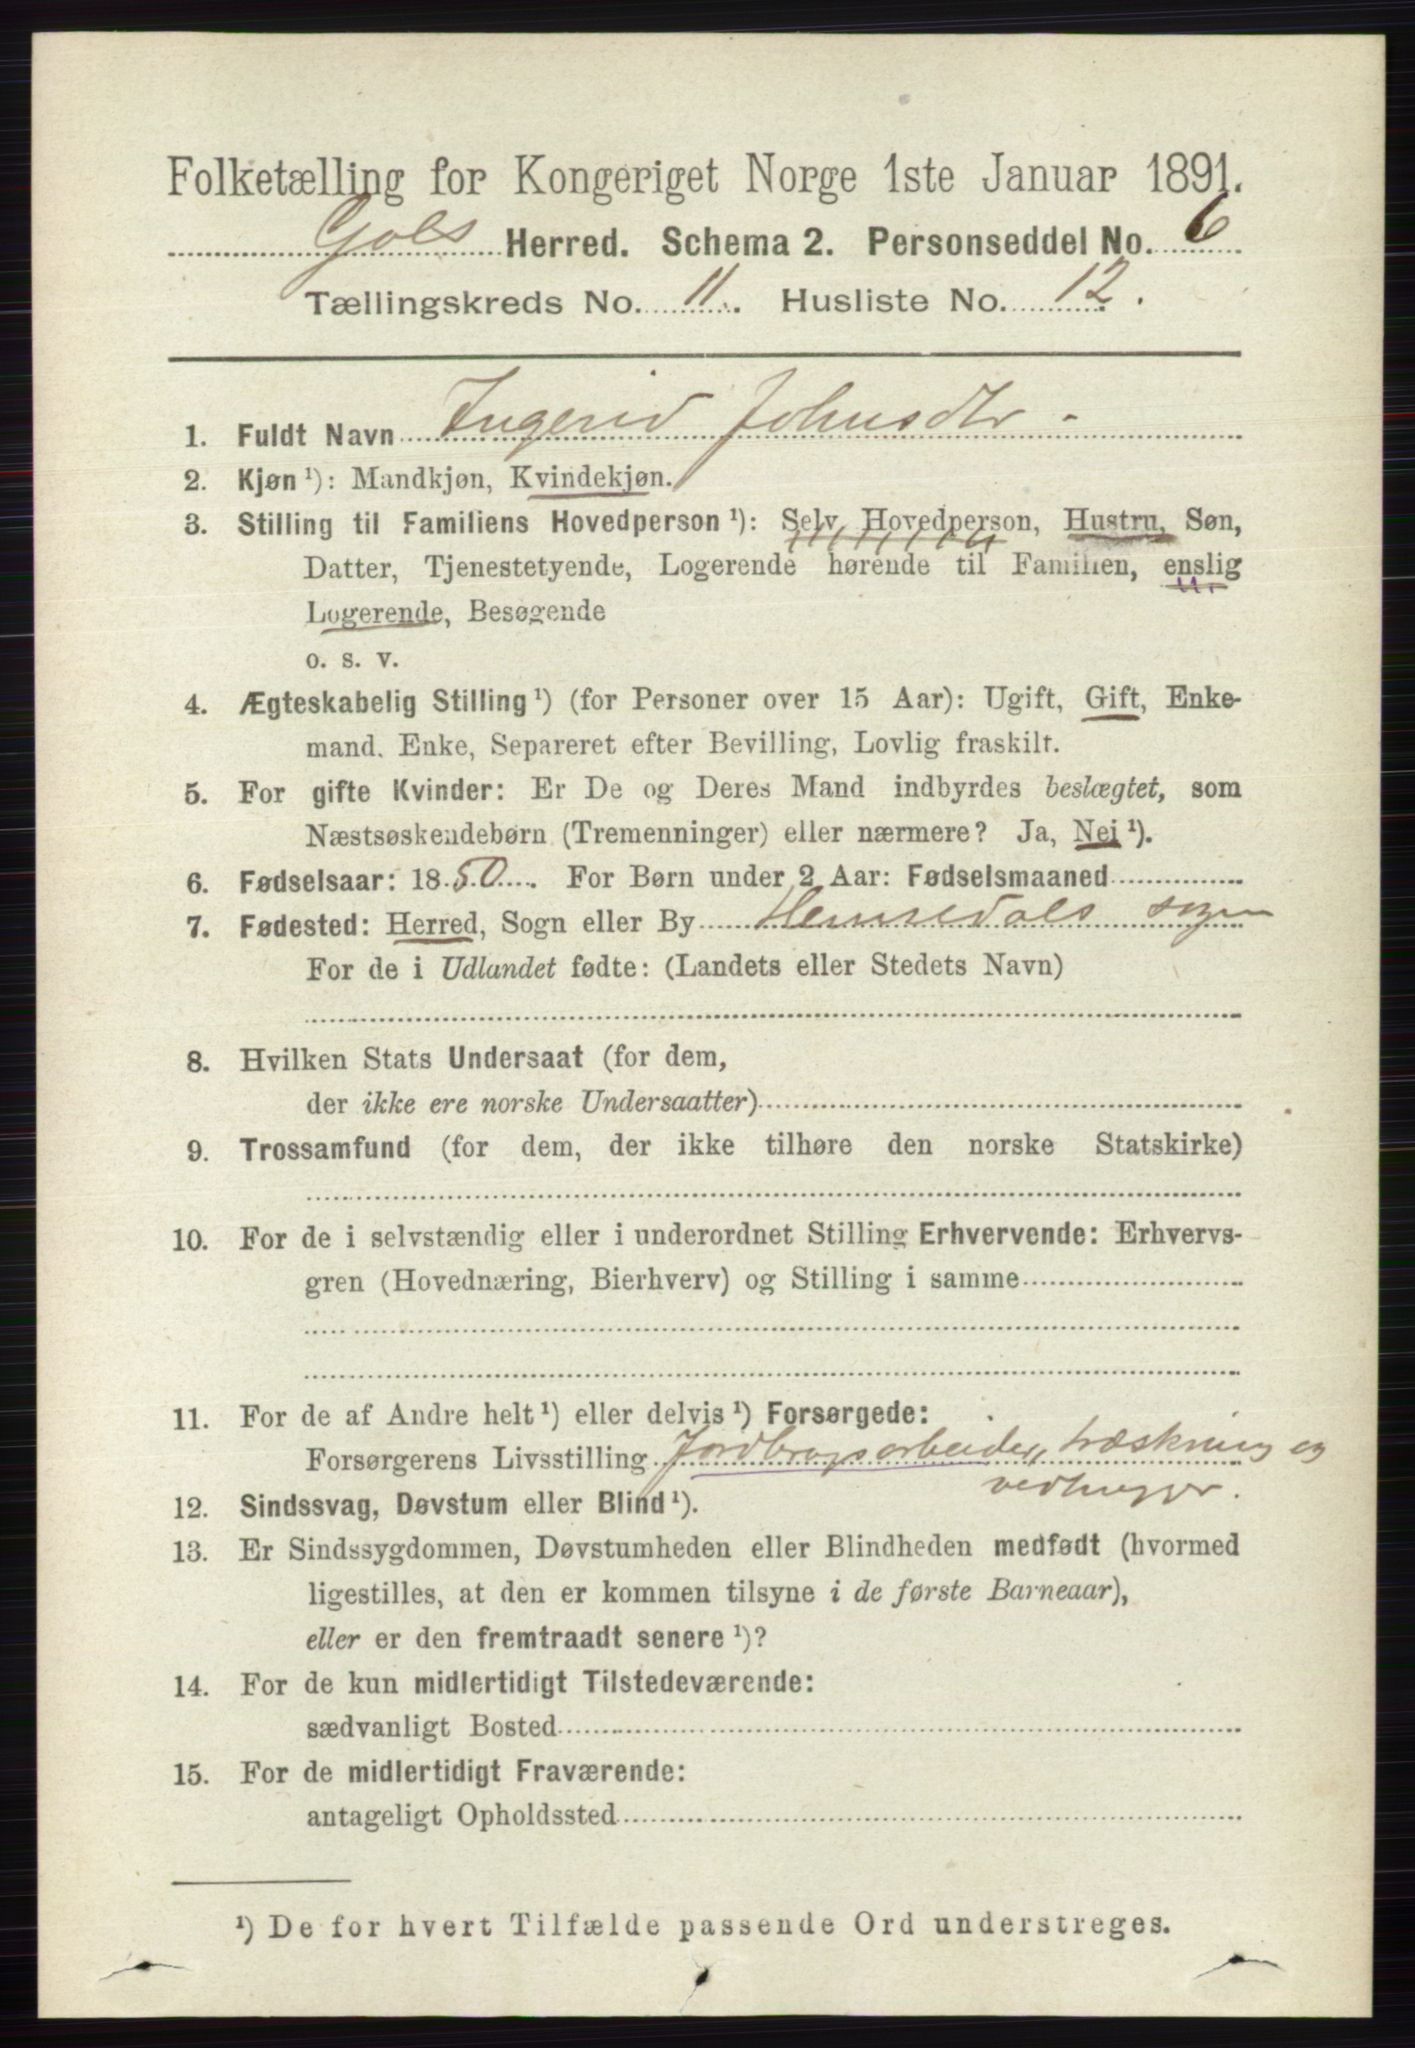 Folketælling for Kongeriget Norge 1ste Januar 1891.
Gols Herred. Schema 2. Personseddel No. 6
Tællingskreds No. 11. Husliste No. 12.
1. Fuldt Navn Ingerid Johnsdtr -
2. Kjøn ¹): Mandkjøn, Kvindekjøn.
3. Stilling til Familiens Hovedperson ¹): Selv Hovedperson, Hustru, Søn,
Datter, Tjenestetyende, Logerende hørende til Familien, enslig
Logerende, Besøgende
o. s. v.
4. Ægteskabelig Stilling ¹) (for Personer over 15 Aar): Ugift, Gift, Enke-
mand. Enke, Separeret efter Bevilling, Lovlig fraskilt.
5. For gifte Kvinder: Er De og Deres Mand indbyrdes beslægtet, som
Næstsøskendebørn (Tremenninger) eller nærmere? Ja, Nei ¹).
6. Fødselsaar: 1850. For Børn under 2 Aar: Fødselsmaaned
7. Fødested: Herred, Sogn eller By Hemsedals sogn
For de i Udlandet fødte: (Landets eller Stedets Navn)
8. Hvilken Stats Undersaat (for dem,
der ikke ere norske Undersaatter)
9. Trossamfund (for dem, der ikke tilhøre den norske Statskirke)
10. For de i selvstændig eller i underordnet Stilling Erhvervende: Erhvervs-
gren (Hovednæring, Bierhverv) og Stilling i samme
11. For de af Andre helt ¹) eller delvis ¹) Forsørgede:
Forsørgerens Livsstilling Jordbrugsarbeider, træskning og
vedhugger.
12. Sindssvag, Døvstum eller Blind ¹).
13. Er Sindssygdommen, Døvstumheden eller Blindheden medfødt (hvormed
ligestilles, at den er kommen tilsyne i de første Barneaar),
eller er den fremtraadt senere ¹)?
14. For de kun midlertidigt Tilstedeværende:
sædvanligt Bosted
15. For de midlertidigt Fraværende:
antageligt Opholdssted
¹) De for hvert Tilfælde passende Ord understreges.